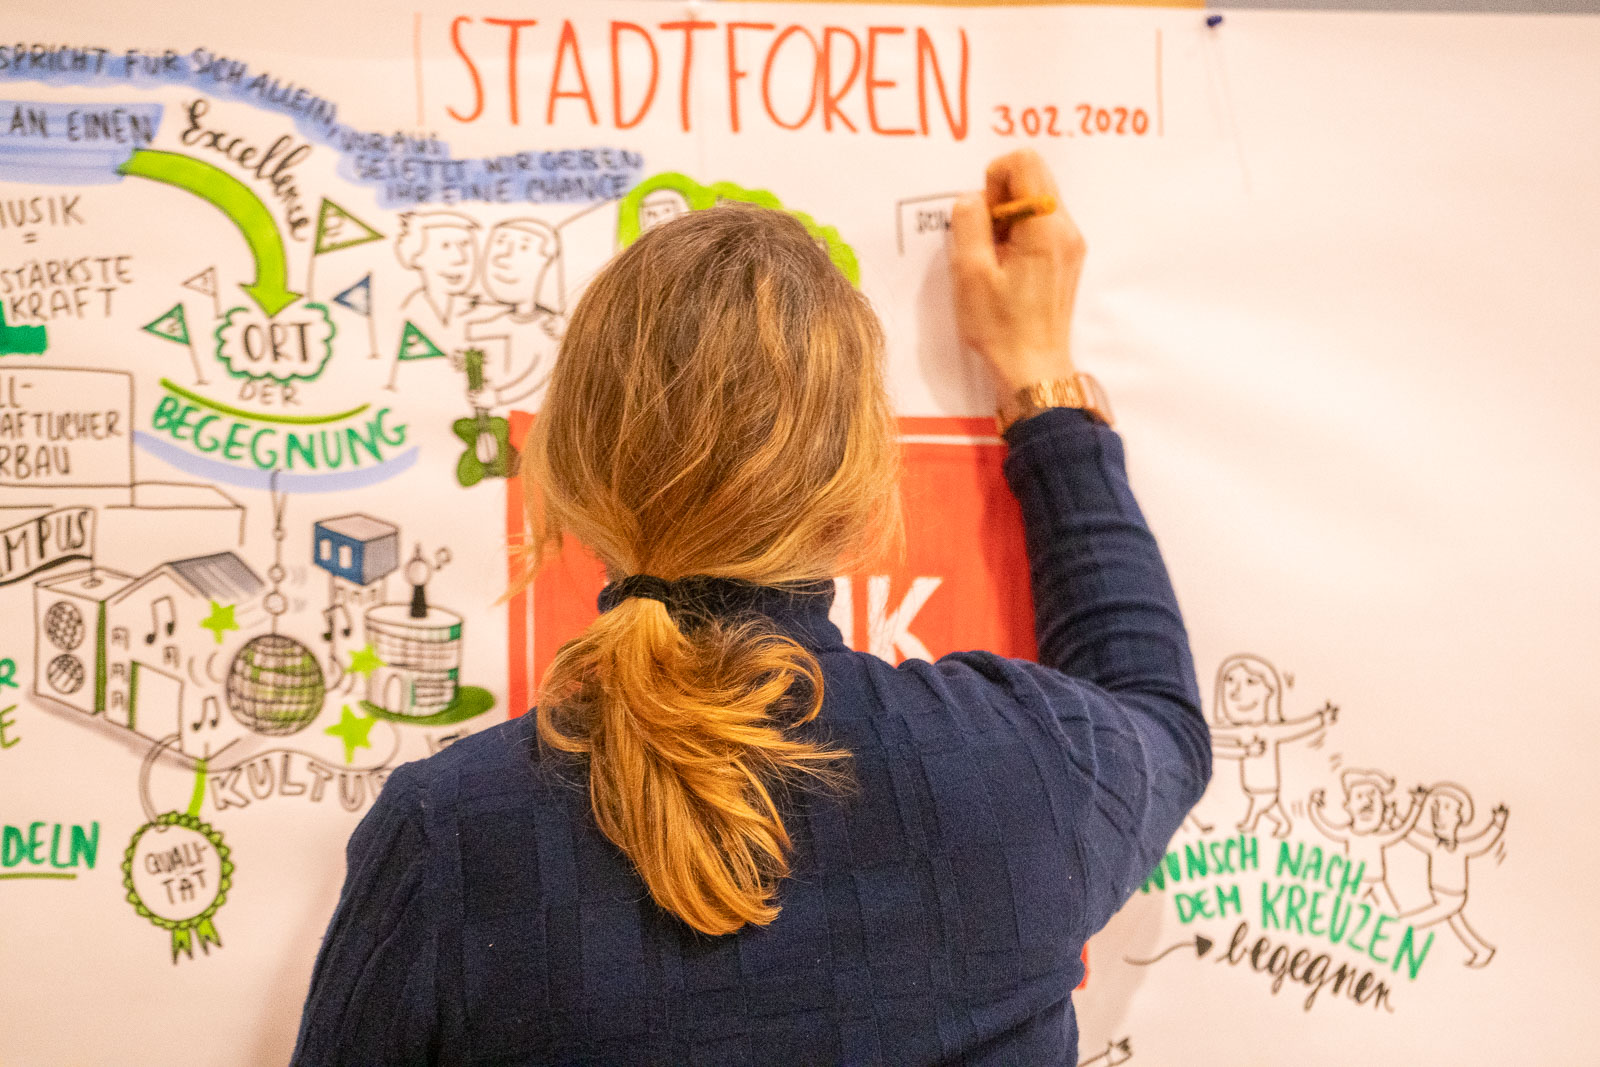 STADTFOREN
3 02.2020
SPRICHT FÜR SICH ALLEIN,
VORAUS
GESETZT WIR GEBEN
IHR EINE CHANCE
AN EINEN
Excellence
MUSIK
=
STÄRKSTE
KRAFT
ORT
DER
BEGEGNUNG
LL-
AFTLICHER
RBAU
MPUS
KULTUR
DELN
QUALI-
TÄT
WUNSCH NACH
DEM KREUZEN
begegnen